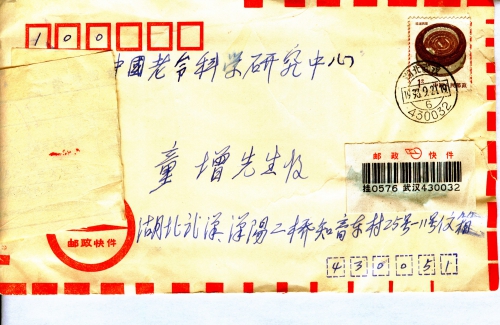 100
中國老令科学研究中心
童增先生收
邮政快件
挂0576 武汉430032
湖北武漢漢陽二桥知音东村25号-11号信箱
430051
邮政快件
430032